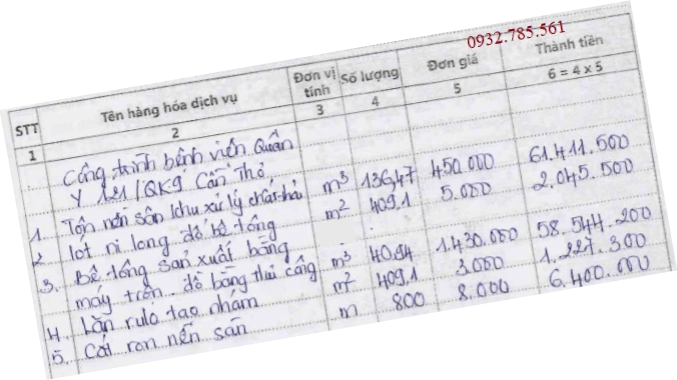 0932.785.561
STT Tên hàng hóa dịch vụ Đơn vị tính Số lượng Đơn giá Thành tiền
1 2 3 4 5 6 = 4 x 5
Công trình bệnh viện Quân
Y 121/QK9 Cần Thơ,
1. Tôn nền sân khu xử lý chất thải m³ 136,47 450.000 61.411.500
2. lót ni long đổ bê tông m² 409,1 5.000 2.045.500
3. Bê tông sản xuất bằng
máy trộn đổ bằng thủ công m³ 40.94 1.430.000 58.544.200
4. Lăn rulo tạo nhám m² 409,1 3.000 1.227.300
5. Cắt ron nền sân m 800 8.000 6.400.000